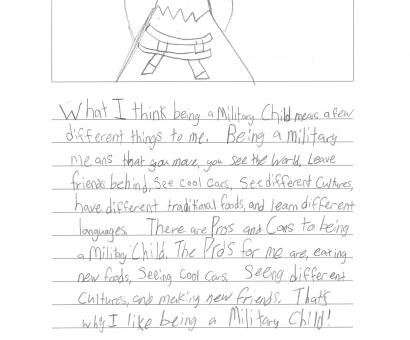 What I think being a Military Child means a few
different things to me. Being a military
means that you move, you see the World, Leave
friends behind, See cool Cars, See different Cultures,
have different traditional foods, and learn different
languages. There are Pros and Cons to being
a Military Child. The Pros for me are, eating
new foods, Seeing Cool Cars. Seeing different
Cultures, and making new friends. That's
why I like being a Military Child!